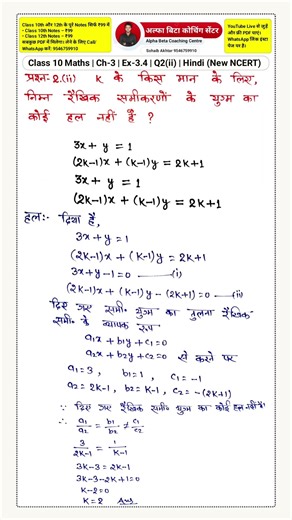 Class 10th और 12th के पूरे Notes सिर्फ ₹99 में
• Class 10th Notes - ₹99
• Class 12th Notes - ₹99
WhatsApp करें: 9046709910
अल्फा बिटा कोचिंग सेंटर
Alpha Beta Coaching Centre
Class 10 Maths | Ch-3 | Ex-3.4 | Q2(ii) | Hindi (New NCERT)
प्रश्न-2.(ii) K के किस मान के लिए,
निम्न रैखिक समीकरणों के युग्म का
कोई हल नहीं है ?
3x + y = 1
(2k-1)x + (k-1)y = 2k+1
3x + y = 1
(2k-1)x + (k-1)y = 2k+1
हल:- दिया है,
3x + y = 1
(2k-1)x + (k-1)y = 2k+1
3x + y - 1 = 0 —(i)
(2k-1)x + (k-1)y - (2k+1) = 0 —(ii)
दिए गए समी॰ युग्म का तुलना रैखिक
समी॰ के व्यापक रूप
a₁x + b₁y + c₁ = 0
a₂x + b₂y + c₂ = 0 से करने पर
a₁ = 3, b₁ = 1, c₁ = -1
a₂ = 2k-1, b₂ = k-1, c₂ = -(2k+1)
∵ दिए गए रैखिक समी॰ युग्म का कोई हल नहीं है।
∴ a₁/a₂ = b₁/b₂ ≠ c₁/c₂
3/2k-1 = 1/k-1
3k-3 = 2k-1
3k-3-2k+1=0
k-2=0
k=2 Ans